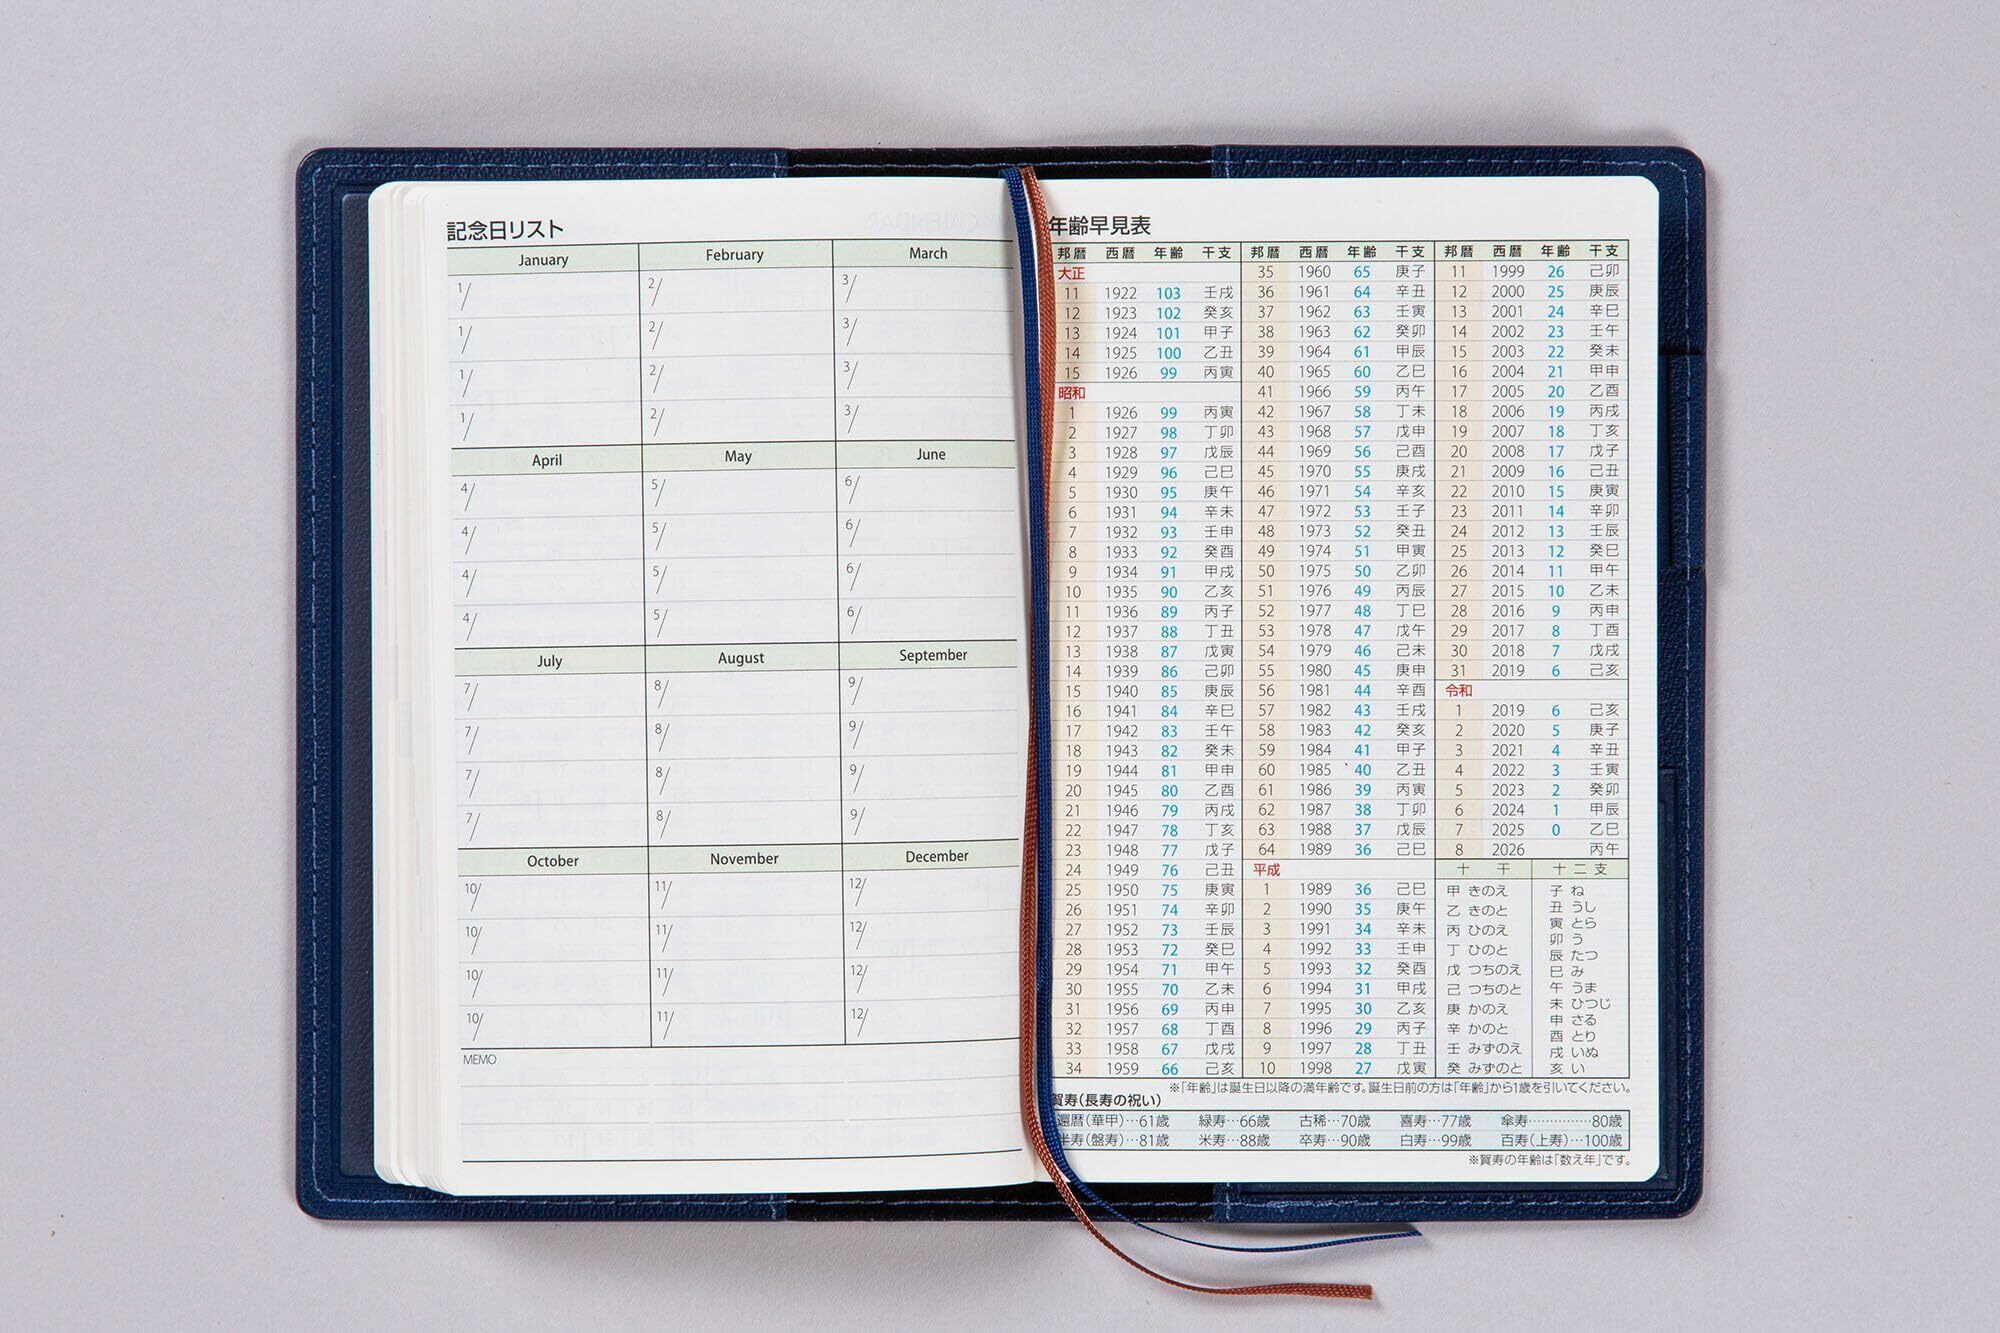 記念日リスト
January February March
1/ 2/ 3/
1/ 2/ 3/
1/ 2/ 3/
1/ 2/ 3/
April May June
4/ 5/ 6/
4/ 5/ 6/
4/ 5/ 6/
4/ 5/ 6/
July August September
7/ 8/ 9/
7/ 8/ 9/
7/ 8/ 9/
7/ 8/ 9/
October November December
10/ 11/ 12/
10/ 11/ 12/
10/ 11/ 12/
10/ 11/ 12/
MEMO
年齢早見表
邦暦 西暦 年齢 干支
大正
11 1922 103 壬戌
12 1923 102 癸亥
13 1924 101 甲子
14 1925 100 乙丑
15 1926 99 丙寅
昭和
1 1926 99 丙寅
2 1927 98 丁卯
3 1928 97 戊辰
4 1929 96 己巳
5 1930 95 庚午
6 1931 94 辛未
7 1932 93 壬申
8 1933 92 癸酉
9 1934 91 甲戌
10 1935 90 乙亥
11 1936 89 丙子
12 1937 88 丁丑
13 1938 87 戊寅
14 1939 86 己卯
15 1940 85 庚辰
16 1941 84 辛巳
17 1942 83 壬午
18 1943 82 癸未
19 1944 81 甲申
20 1945 80 乙酉
21 1946 79 丙戌
22 1947 78 丁亥
23 1948 77 戊子
24 1949 76 己丑
25 1950 75 庚寅
26 1951 74 辛卯
27 1952 73 壬辰
28 1953 72 癸巳
29 1954 71 甲午
30 1955 70 乙未
31 1956 69 丙申
32 1957 68 丁酉
33 1958 67 戊戌
34 1959 66 己亥
邦暦 西暦 年齢 干支
35 1960 65 庚子
36 1961 64 辛丑
37 1962 63 壬寅
38 1963 62 癸卯
39 1964 61 甲辰
40 1965 60 乙巳
41 1966 59 丙午
42 1967 58 丁未
43 1968 57 戊申
44 1969 56 己酉
45 1970 55 庚戌
46 1971 54 辛亥
47 1972 53 壬子
48 1973 52 癸丑
49 1974 51 甲寅
50 1975 50 乙卯
51 1976 49 丙辰
52 1977 48 丁巳
53 1978 47 戊午
54 1979 46 己未
55 1980 45 庚申
56 1981 44 辛酉
57 1982 43 壬戌
58 1983 42 癸亥
59 1984 41 甲子
60 1985 40 乙丑
61 1986 39 丙寅
62 1987 38 丁卯
63 1988 37 戊辰
64 1989 36 己巳
平成
1 1989 36 己巳
2 1990 35 庚午
3 1991 34 辛未
4 1992 33 壬申
5 1993 32 癸酉
6 1994 31 甲戌
7 1995 30 乙亥
8 1996 29 丙子
9 1997 28 丁丑
10 1998 27 戊寅
邦暦 西暦 年齢 干支
11 1999 26 己卯
12 2000 25 庚辰
13 2001 24 辛巳
14 2002 23 壬午
15 2003 22 癸未
16 2004 21 甲申
17 2005 20 乙酉
18 2006 19 丙戌
19 2007 18 丁亥
20 2008 17 戊子
21 2009 16 己丑
22 2010 15 庚寅
23 2011 14 辛卯
24 2012 13 壬辰
25 2013 12 癸巳
26 2014 11 甲午
27 2015 10 乙未
28 2016 9 丙申
29 2017 8 丁酉
30 2018 7 戊戌
31 2019 6 己亥
令和
1 2019 6 己亥
2 2020 5 庚子
3 2021 4 辛丑
4 2022 3 壬寅
5 2023 2 癸卯
6 2024 1 甲辰
7 2025 0 乙巳
8 2026 丙午
十干
甲 きのえ
乙 きのと
丙 ひのえ
丁 ひのと
戊 つちのえ
己 つちのと
庚 かのえ
辛 かのと
壬 みずのえ
癸 みずのと
十二支
子 ね
丑 うし
寅 とら
卯 う
辰 たつ
巳 み
午 うま
未 ひつじ
申 さる
酉 とり
戌 いぬ
亥 い
※「年齢」は誕生日以降の満年齢です。誕生日前の方は「年齢」から1歳を引いてください。
賀寿（長寿の祝い）
還暦（華甲）…61歳 緑寿…66歳 古稀…70歳 喜寿…77歳 傘寿…………80歳
半寿（盤寿）…81歳 米寿…88歳 卒寿…90歳 白寿…99歳 百寿（上寿）…100歳
※賀寿の年齢は「数え年」です。